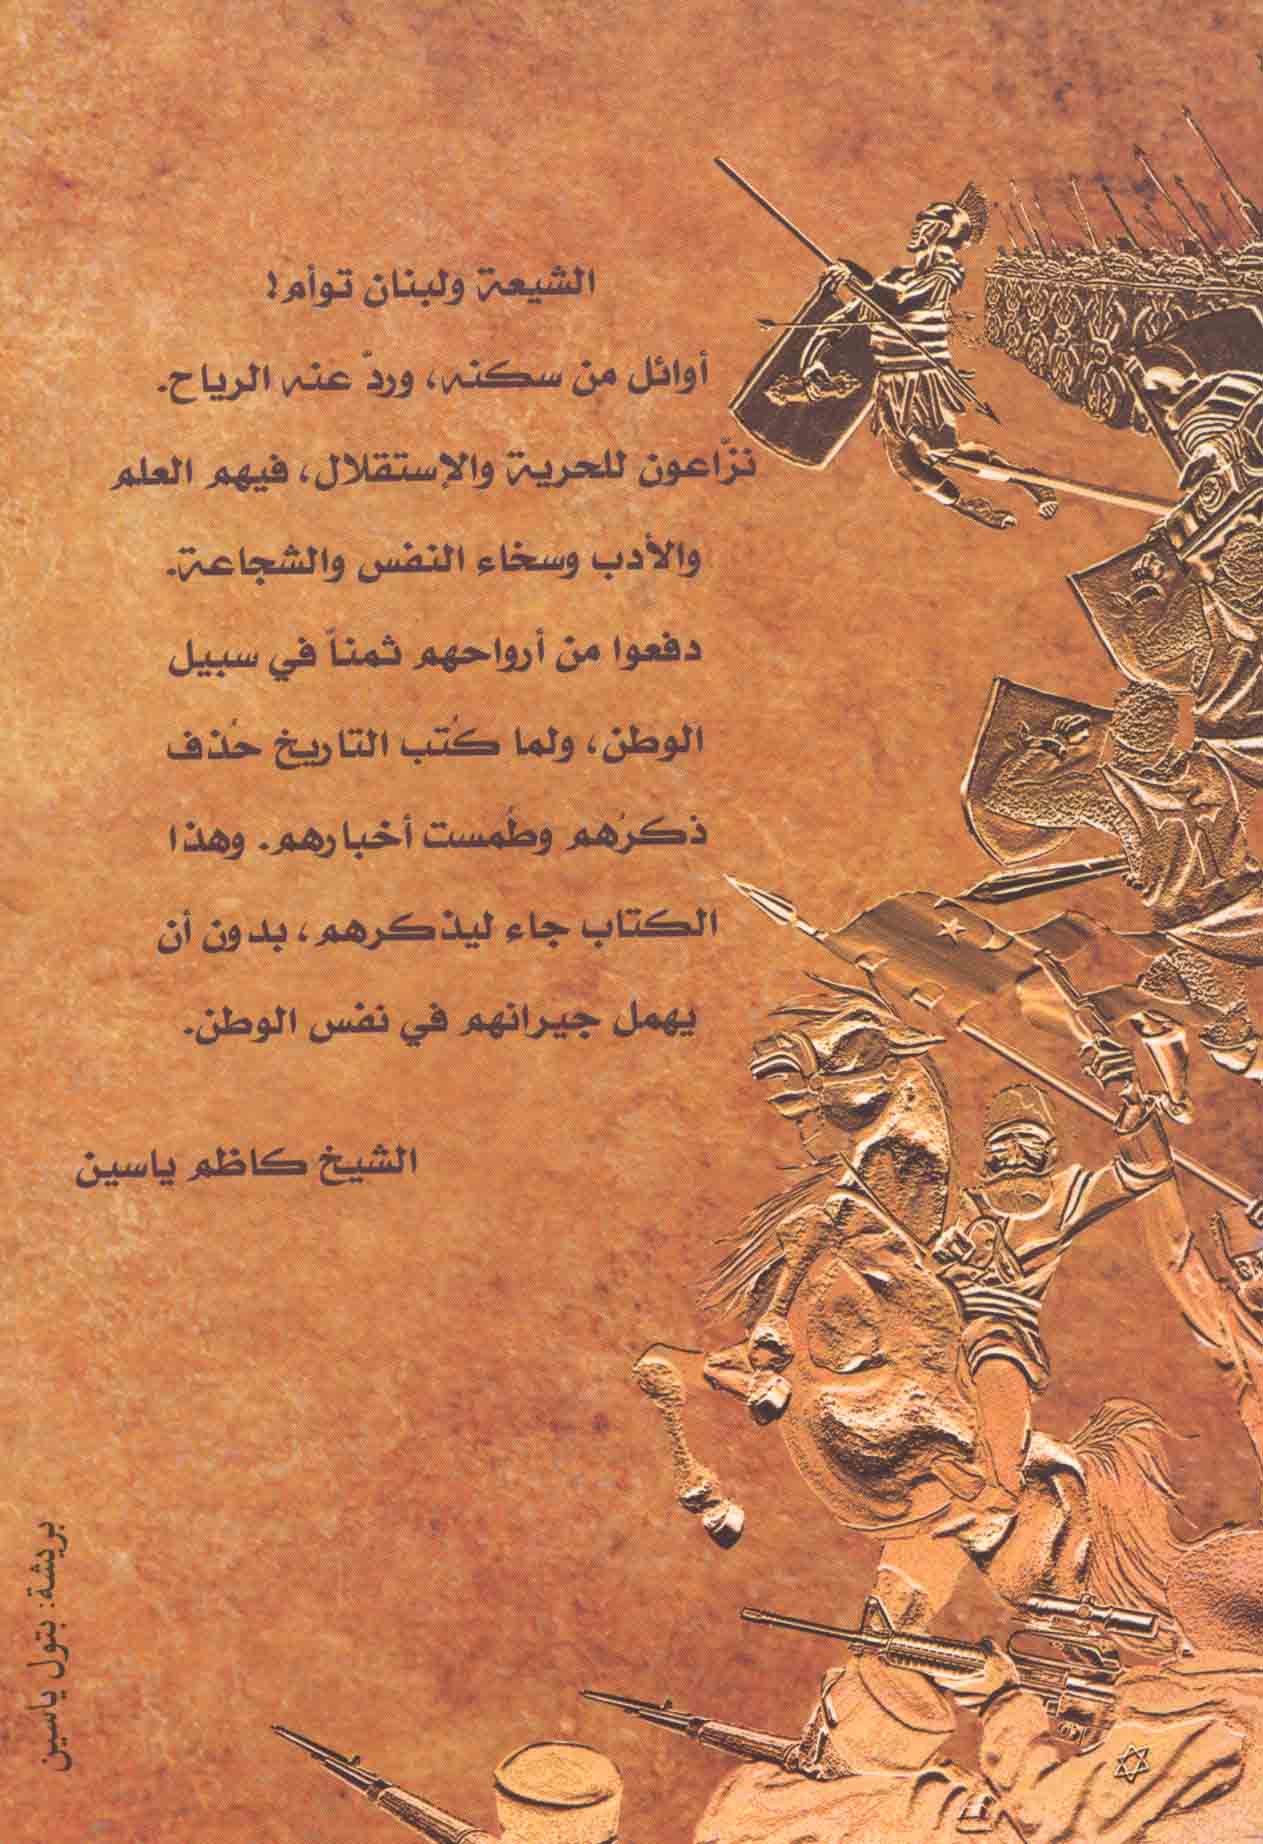 الشيعة ولبنان توأم!
أوائل من سكنه، وردّ عنه الرياح.
نزّاعون للحرية والإستقلال، فيهم العلم
والأدب وسخاء النفس والشجاعة.
دفعوا من أرواحهم ثمناً في سبيل
الوطن، ولما كُتب التاريخ حُذف
ذكرُهم وطُمست أخبارهم. وهذا
الكتاب جاء ليذكرهم، بدون أن
يهمل جيرانهم في نفس الوطن.
الشيخ كاظم ياسين
بريشة: بتول ياسين